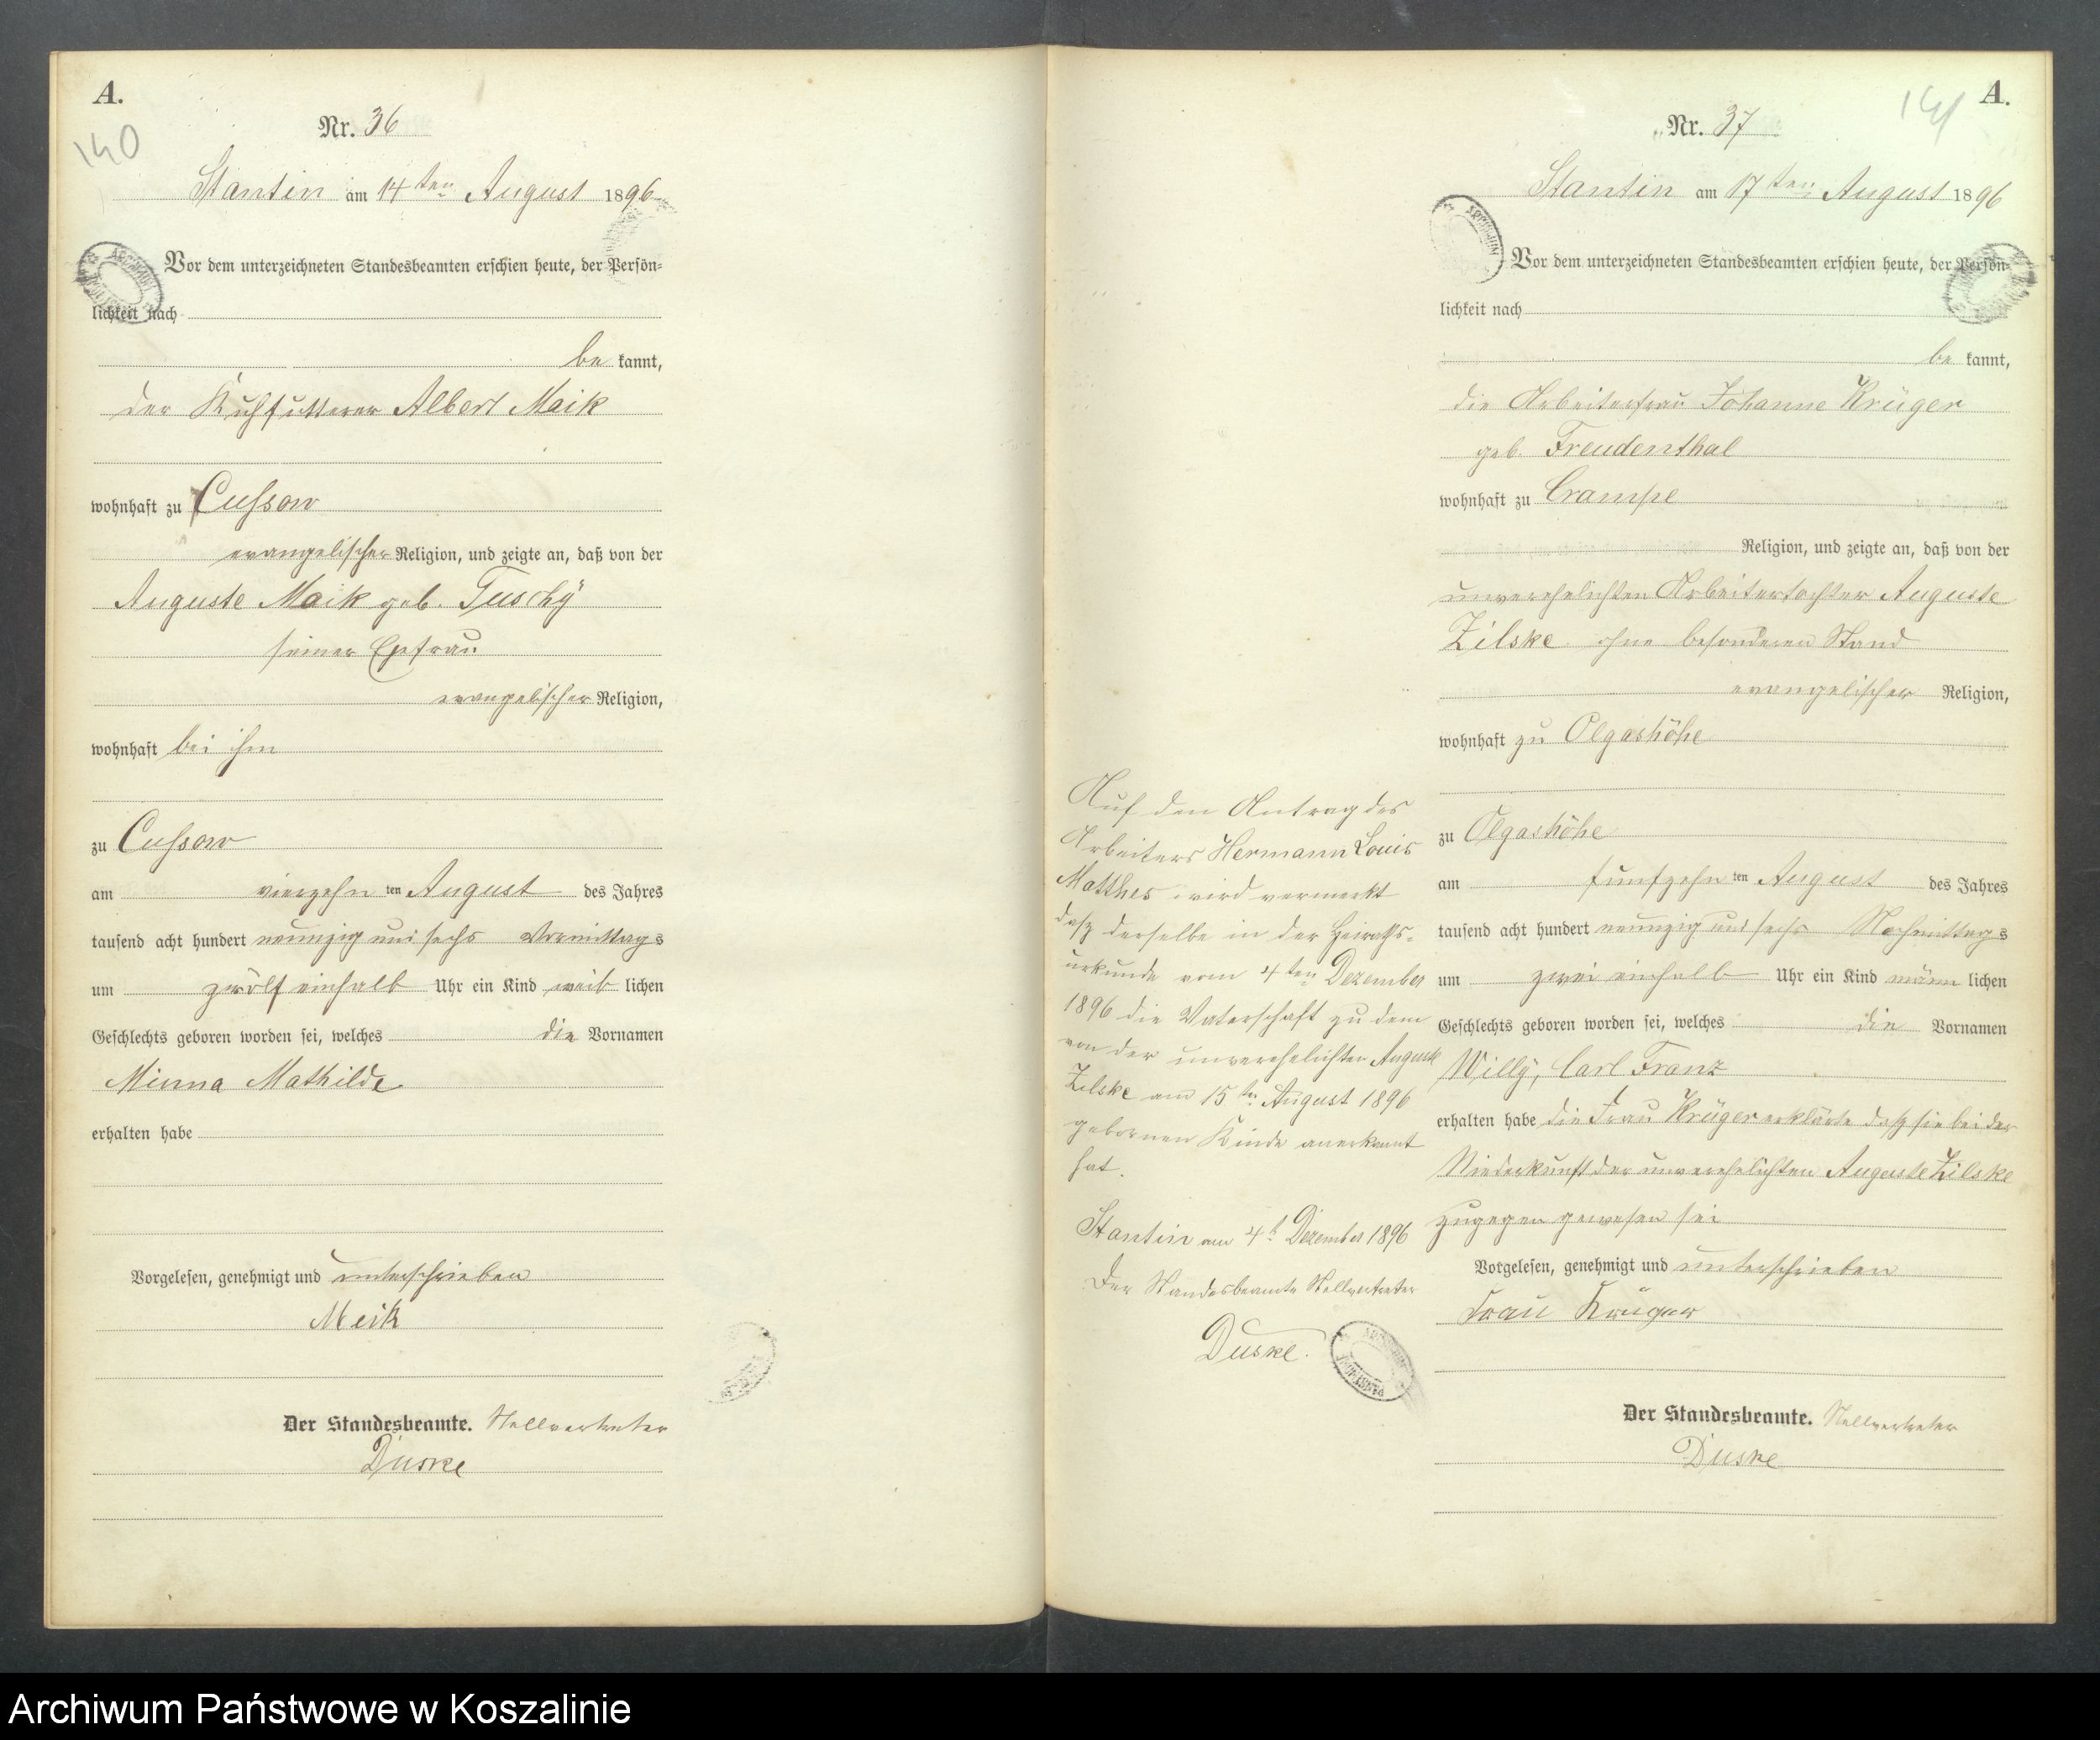 A.
140
Nr. 36
Stantin am 14ten August 1896
Vor dem unterzeichneten Standesbeamten erschien heute, der Persön=
lichkeit nach
be kannt,
der Kuhfutterer Albert Maik
wohnhaft zu Cussow
evangelischer Religion, und zeigte an, daß von der
Auguste Maik geb. Tuschÿ
seiner Ehefrau
evangelischer Religion,
wohnhaft bei ihm
zu Cussow
am vierzehn ten August des Jahres
tausend acht hundert neunzig und sechs Vormittags
um zwölf einhalb Uhr ein Kind weib lichen
Geschlechts geboren worden sei, welches die Vornamen
Minna Mathilde
erhalten habe
Vorgelesen, genehmigt und unterschrieben
Meik
Der Standesbeamte. Stellvertreter
Duske
A.
141
Nr. 37
Stantin am 17ten August 1896
Vor dem unterzeichneten Standesbeamten erschien heute, der Persön=
lichkeit nach
be kannt,
die Arbeiterfrau Johanne Krüger
geb. Freudenthal
wohnhaft zu Crampe
Religion, und zeigte an, daß von der
unverehelichten Arbeitertochter Auguste
Zilske ohne besonderen Stand
evangelischer Religion,
wohnhaft zu Olgashöhe
zu Olgashöhe
am funfzehn ten August des Jahres
tausend acht hundert neunzig und sechs Nachmittags
um zwei einhalb Uhr ein Kind männ lichen
Geschlechts geboren worden sei, welches die Vornamen
Willÿ, Carl Franz
erhalten habe die Frau Krüger erklärte daß sie bei der
Niederkunft der unverehelichten Auguste Zilske
zugegen gewesen sei
Vorgelesen, genehmigt und unterschrieben
Frau Krüger
Der Standesbeamte. Stellvertreter
Duske
Auf den Antrag des
Arbeiters Hermann Louis
Matthes wird vermerkt
daß derselbe in der Heiraths=
urkunde vom 4ten Dezember
1896 die Vaterschaft zu dem
von der unverehelichten Auguste
Zilske am 15ten August 1896
gebornen Kinde anerkannt
hat.
Stantin am 4t Dezember 1896
Der Standesbeamte Stellvertreter
Duske.
Archiwum Państwowe w Koszalinie